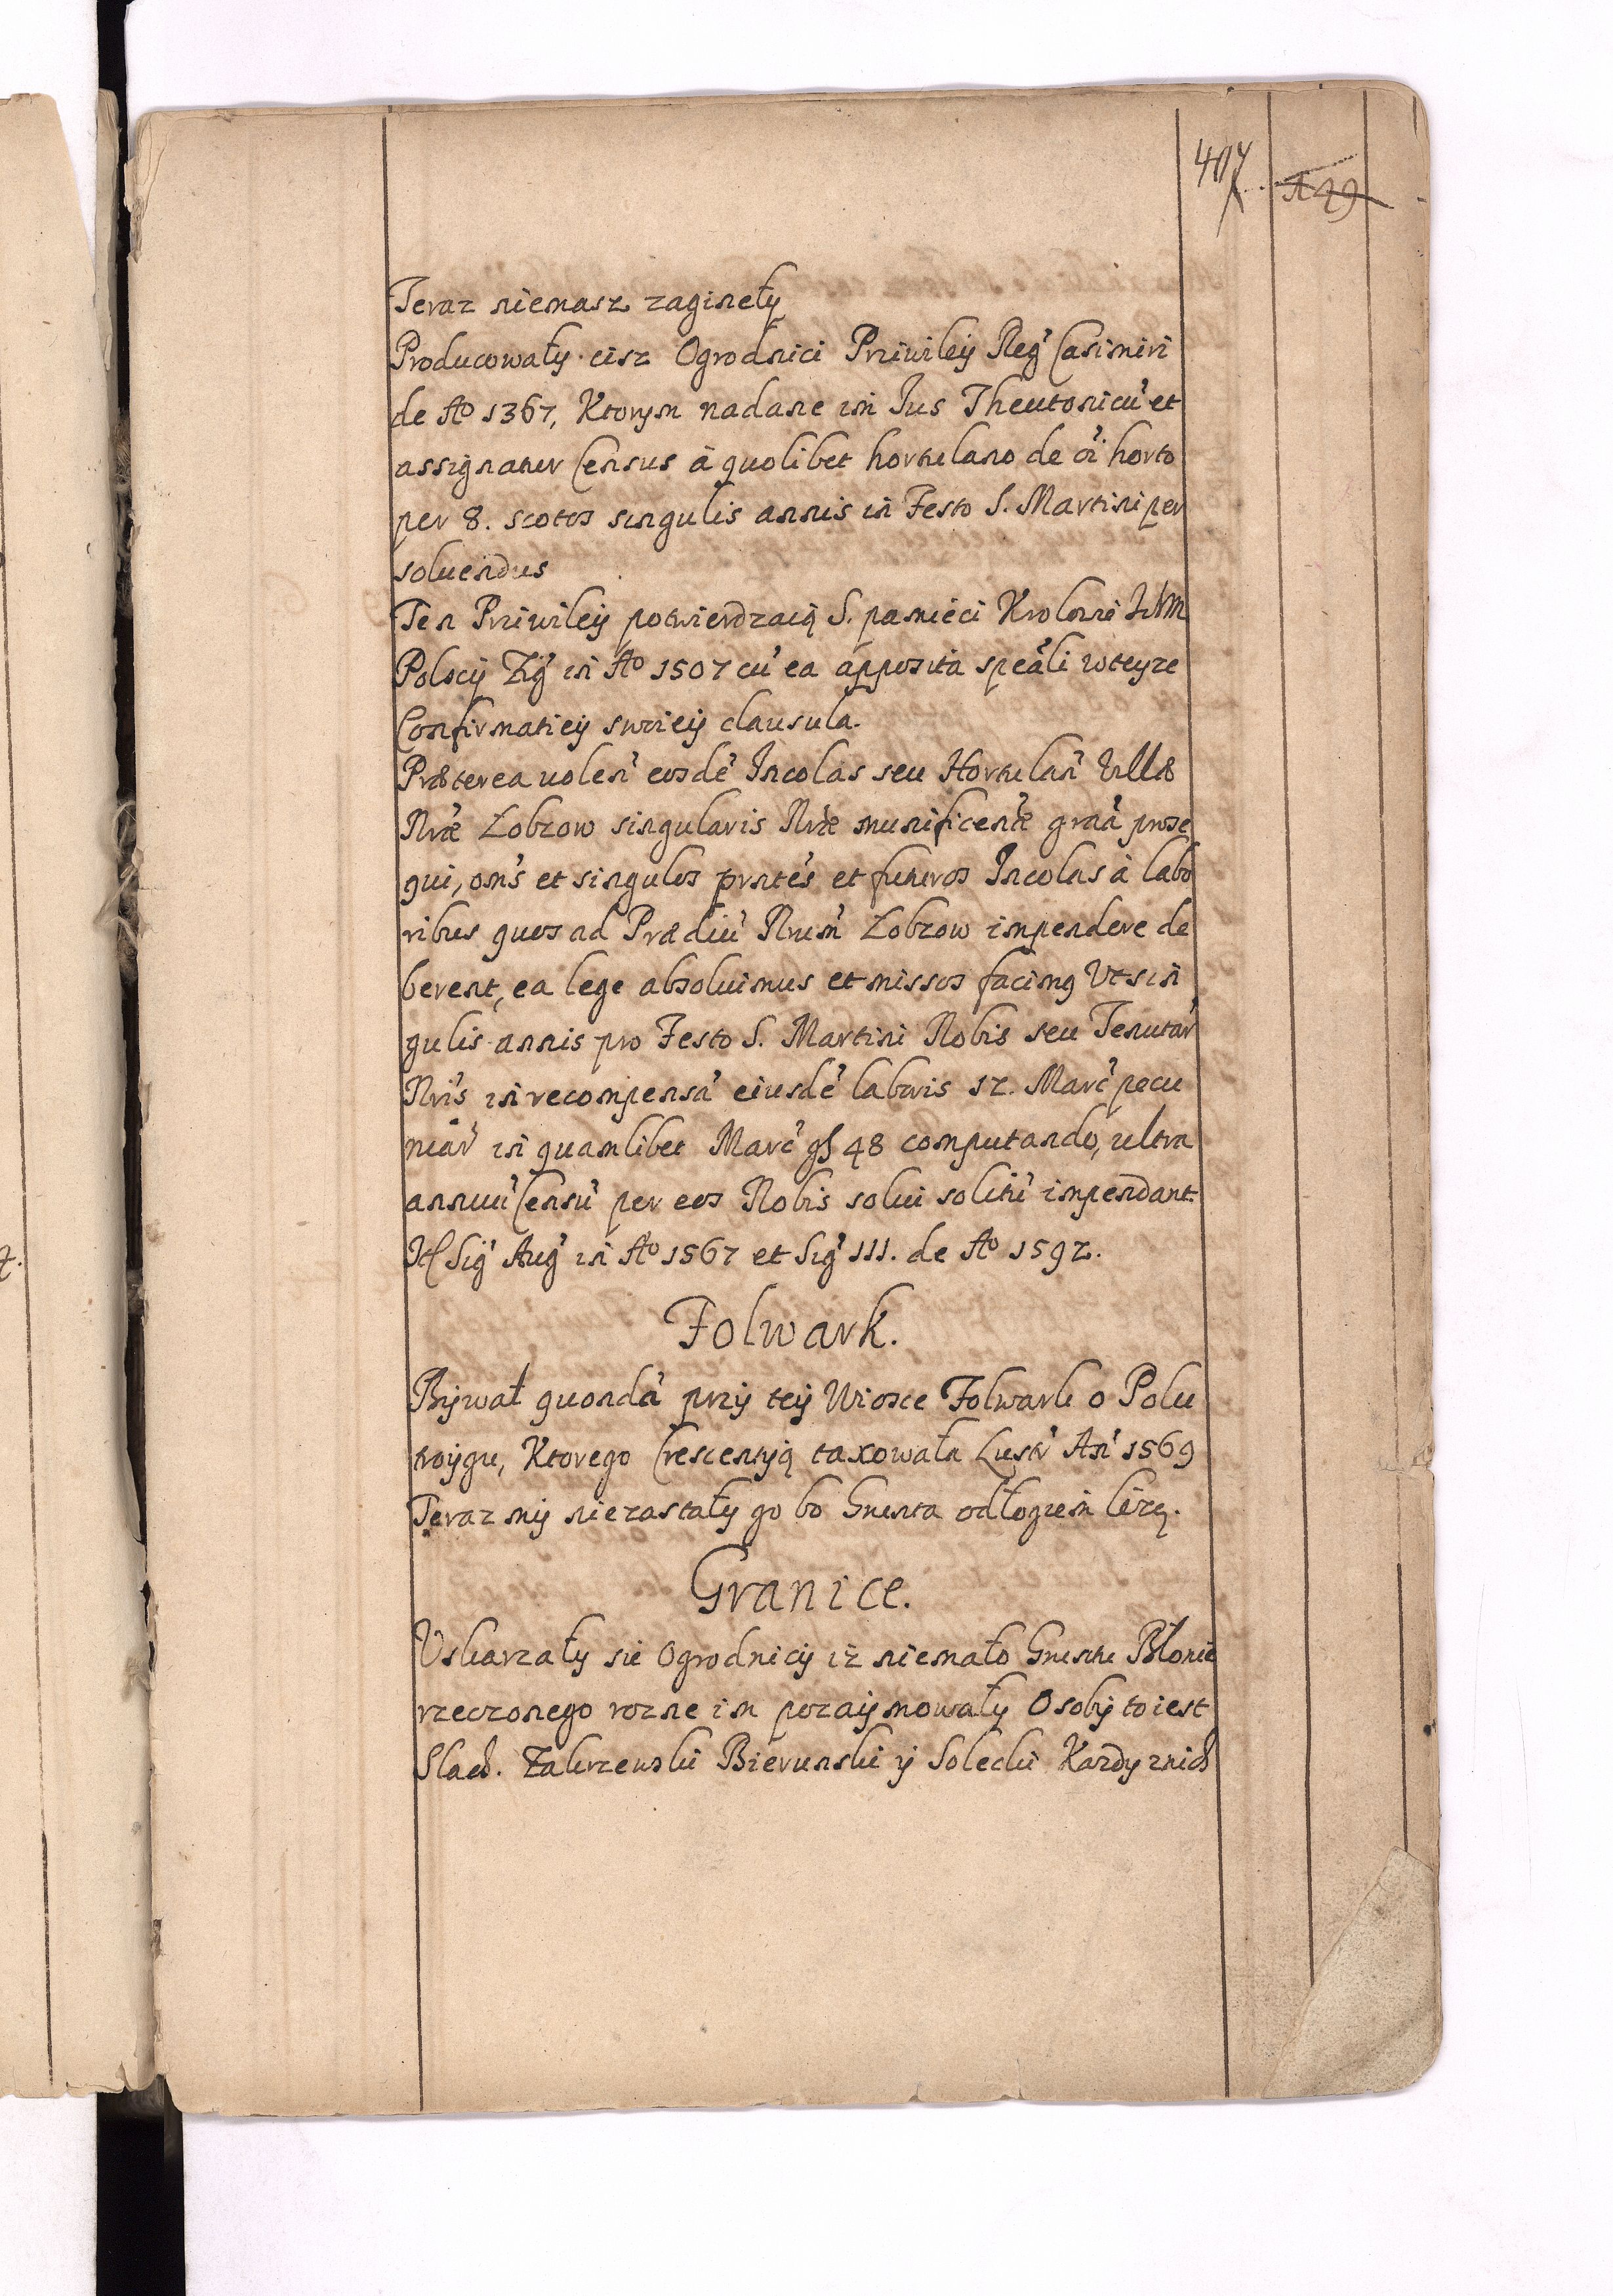 407
Teraz niemasz zaginęły
Producowały cisz Ogrodnici Priwiley Reg' Casimiri
de Ao 1367, Ktorym nadane im Ius Theutonicu' et
assignatur Census à quolibet hortulano de o'i horto
per 8. scotos singulis annis in Festo S. Martini per
soluendus
Ten Priwiley potwierdzaią S. pamięci Krolowie
Polscy Zig' in Ao 1507 cu' ea apposita speali wteyze
Confirmatiey swoiey clausula.
Præterea uolen' eosde' Incolas seu Hortulan' Villæ
Nræ Lobzow singularis Nræ munificentiæ gra'a prose
qui, om's et singulos prnte's et futuros Incolas à labo
ribus quos ad Prædiu' Nrum Lobzow impendere de
berent, ea lege absoluimus et missos facimq Vt sin
gulis annis pro Festo S. Martini Nobis seu Tenutar'
Nri's in recompensa' eiusde' laboris 12. Marc' pecu
niar' in quamlibet Marc' gs 48 computando, ultra
annuu' Censu' per eos Nobis solui solitu' impendant.
It Sig' Aug' in Ao 1567 et Sig' III. de Ao 1592.
Folwark.
Bywał quonda' przy tey Wiosce Folwark o Polu
troygu, Ktorego Crescentyą taxowała Lustr' An' 1569
Teraz my niezastały go bo Grunta odłogiem leżą.
Granice.
Uskarzały sie Ogrodnicy iż niemało Gruntu Błonie
rzeczonego rozne im pozaymowały Osoby to iest
Slach. Zakrzewski Bierunski y Solecki Kazdy znich